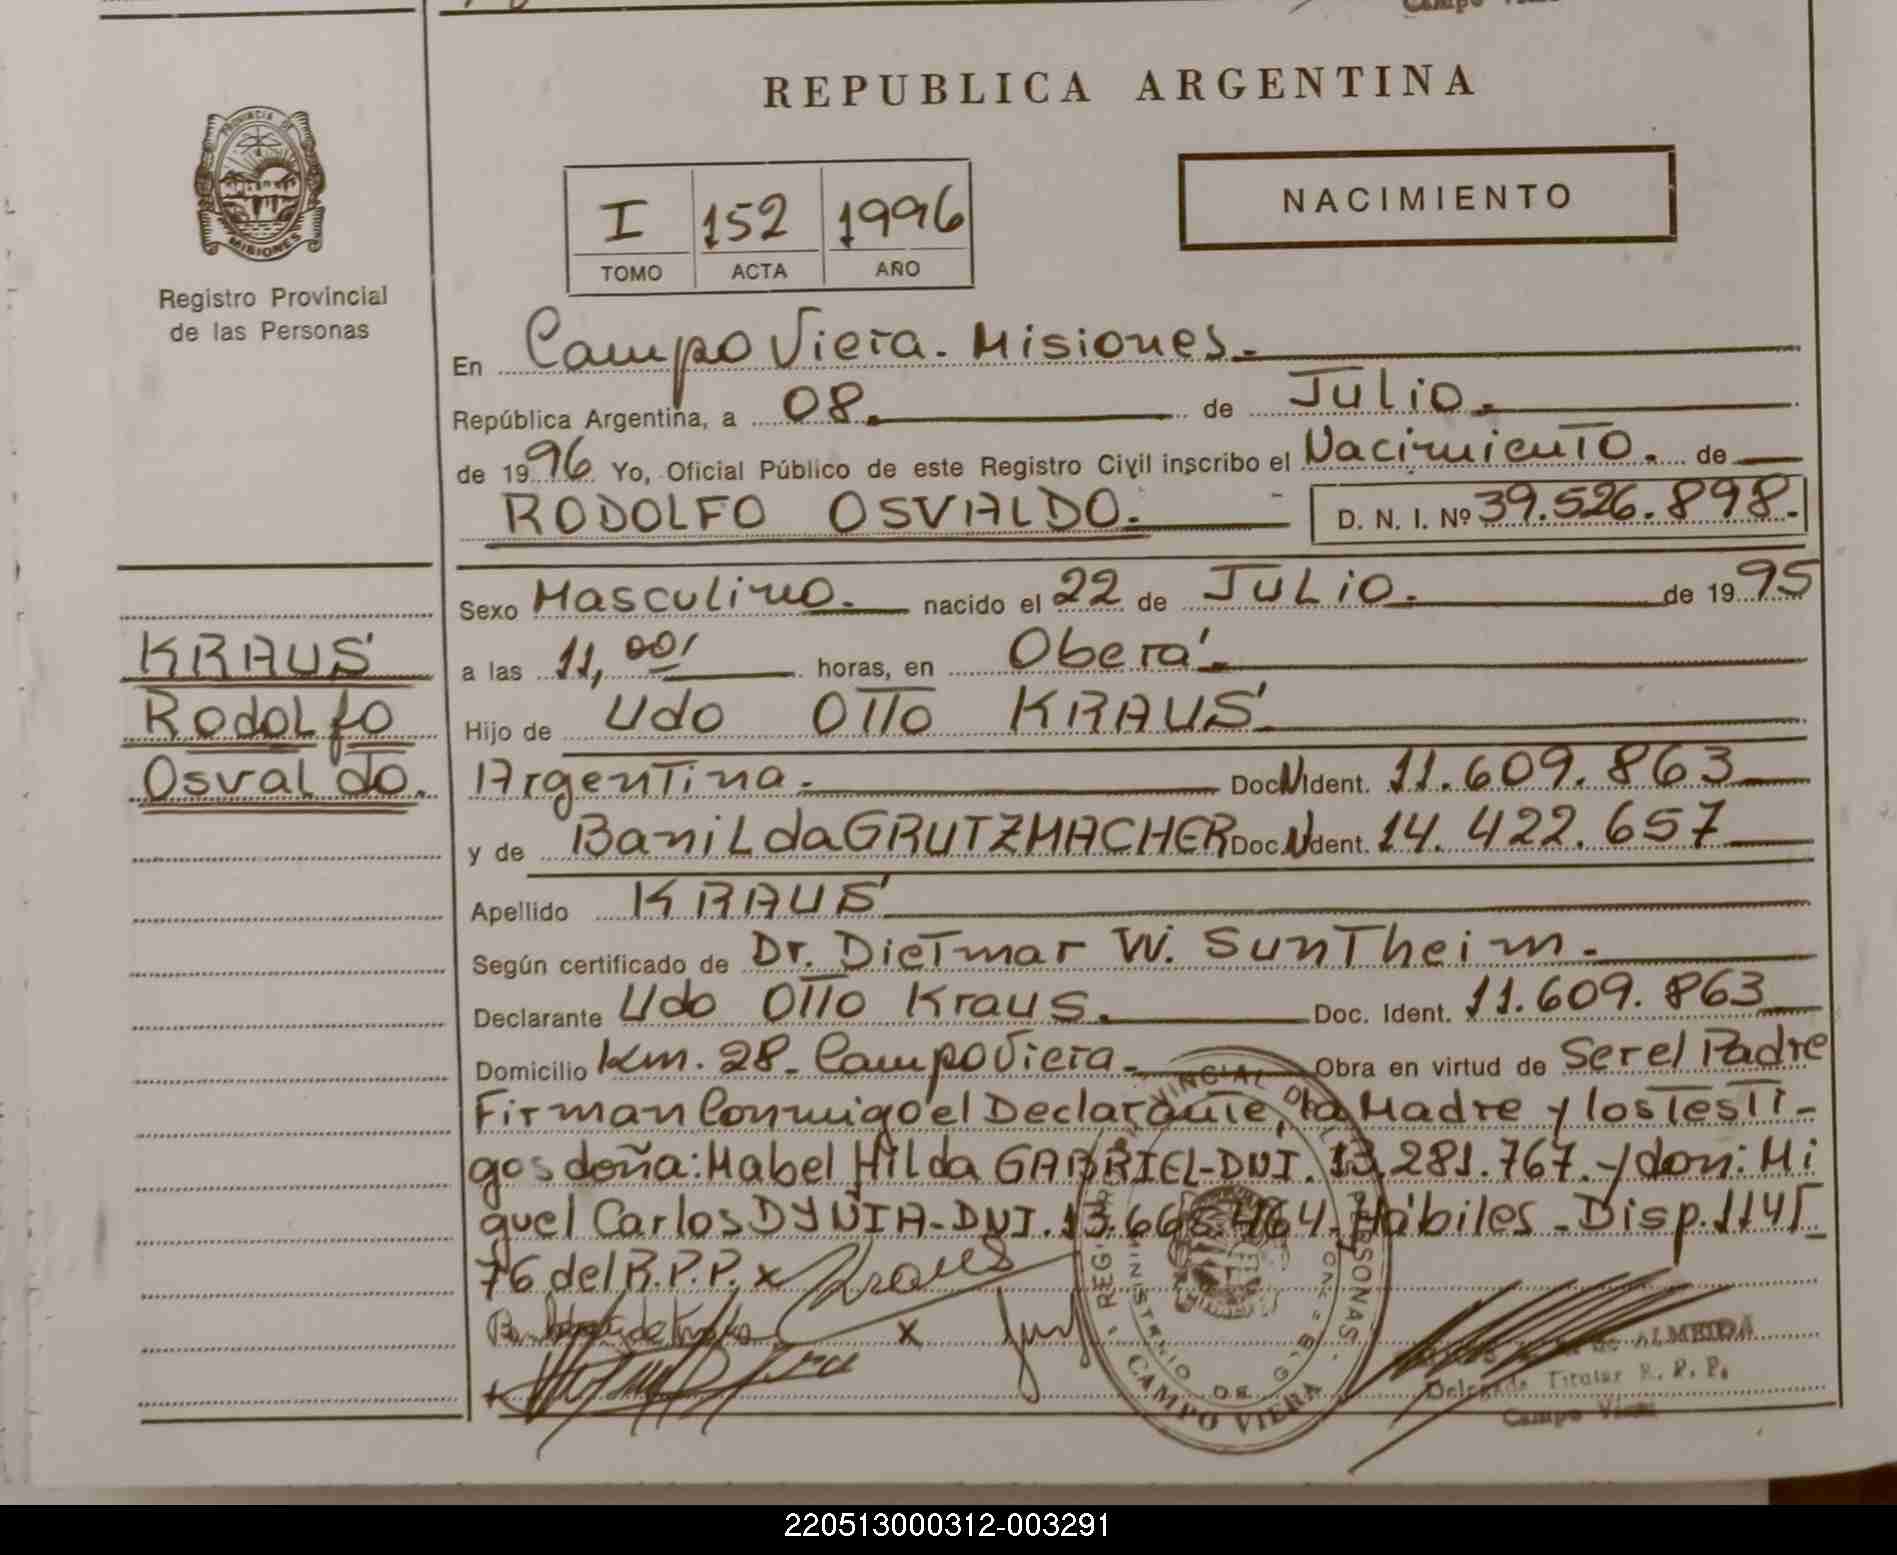 REPUBLICA ARGENTINA
PROVINCIA DE
MISIONES
Registro Provincial
de las Personas
I 152 1996
TOMO ACTA AÑO
NACIMIENTO
En Campo Viera. Misiones.
República Argentina, a 08. de Julio.
de 1996 Yo, Oficial Público de este Registro Civil inscribo el Nacimiento. de
RODOLFO OSVALDO. D. N. I. Nº 39.526.898.
Sexo Masculino. nacido el 22 de Julio. de 1995
a las 11,00 horas, en Oberá.
Hijo de Udo Otto KRAUS
Argentina. Doc. N Ident. 11.609.863
y de Banilda GRUTZMACHER Doc. N Ident. 14.422.657
Apellido KRAUS
Según certificado de Dr. Dietmar W. Suntheim.
Declarante Udo Otto Kraus. Doc. Ident. 11.609.863
Domicilio Km. 28- Campo Viera- Obra en virtud de Ser el Padre
Firman Conmigo el Declarante, la Madre y los Testi-
gos doña: Mabel Hilda GABRIEL-DNI. 13.281.767.-y don: Mi
guel Carlos DYNIA-DNI. 13. 464-Hábiles-Disp. 1145
76 del R.P.P. x Kraus
x
KRAUS
Rodolfo
Osvaldo.
CAMPO VIERA
de ALMEIDA
Delegada Titular R. P. P.
Campo Viera
220513000312-003291